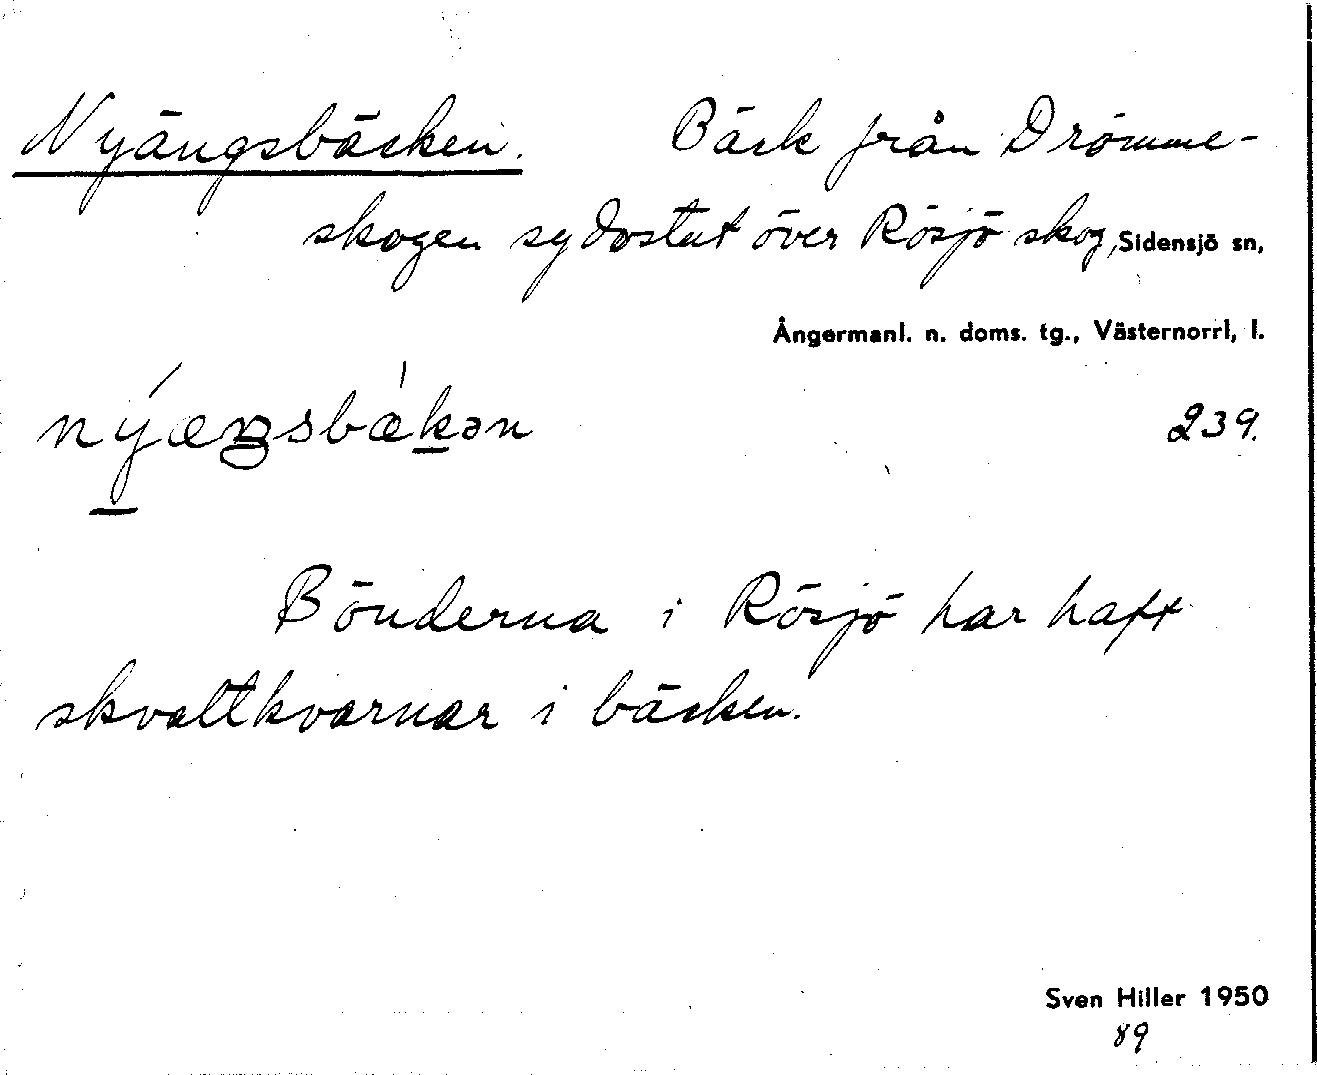 Nyängsbäcken. Bäck från Drömme-
skogen sydostut över Rösjö skog, Sidensjö sn,
Ångermanl. n. doms. tg., Västernorrl. l.
nýæŋsbæ̀kən 239.
Bönderna i Rösjö har haft
skvaltkvarnar i bäcken.
Sven Hiller 1950
89